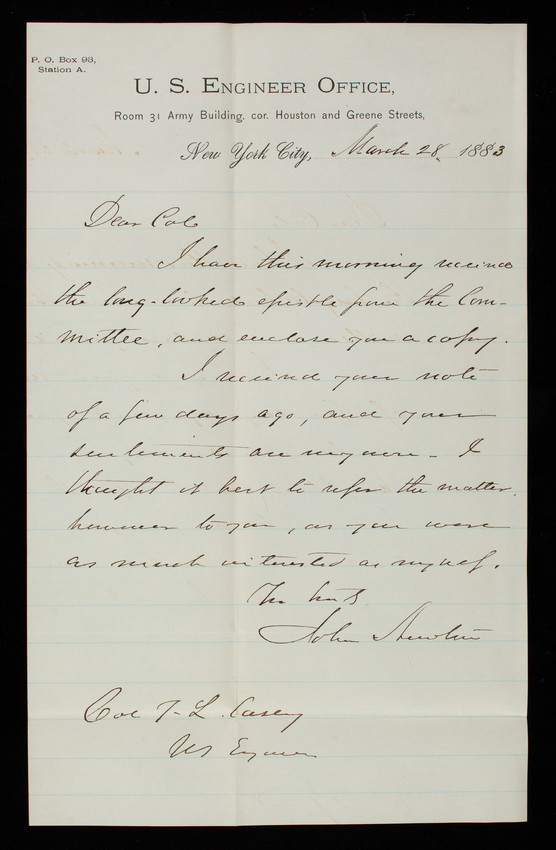 P. O. Box 93,
Station A.
U. S. ENGINEER OFFICE,
Room 31 Army Building, cor. Houston and Greene Streets,
New York City, March 28, 1883
Dear Col
I have this morning received
the long-looked epistle from the Com-
mittee, and enclose you a copy.
I received your note
of a few days ago, and your
sentiments are my own - I
thought it best to refer the matter,
however to you, as you were
as much interested as myself.
John Newton
Col T. L. Casey
US Engineer